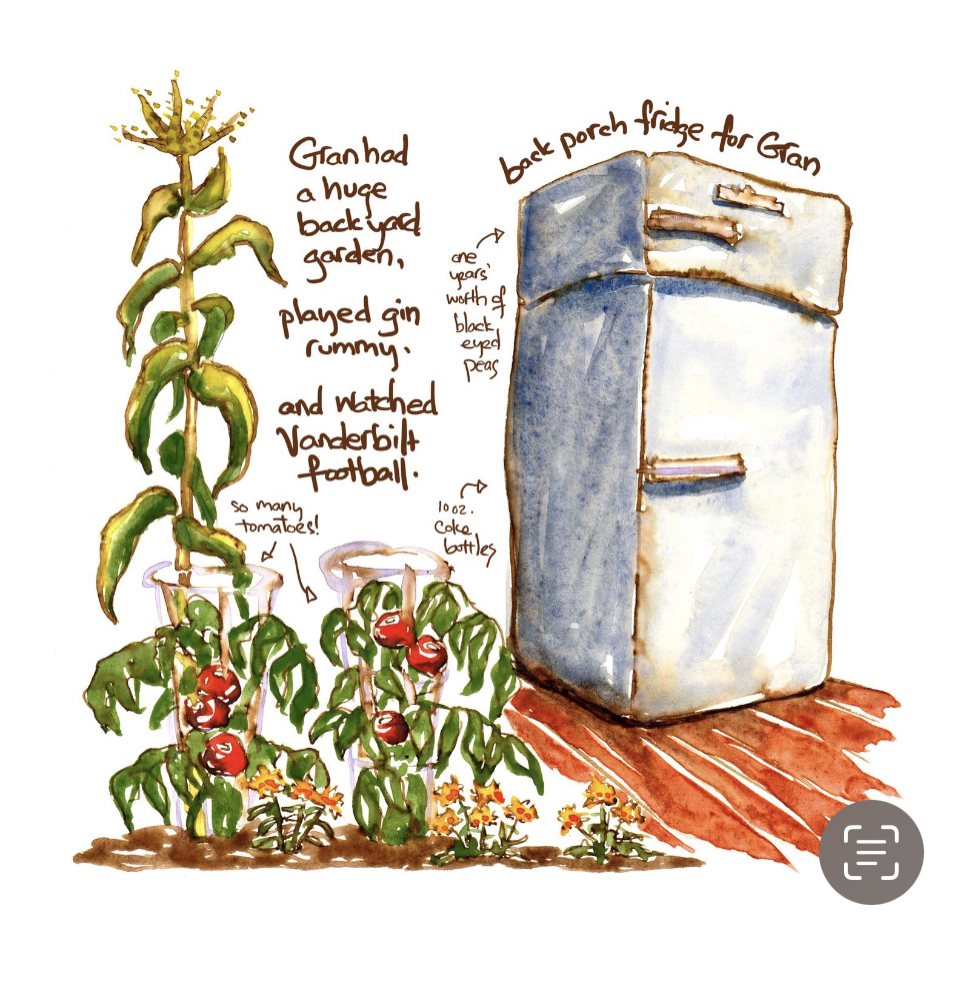 back porch fridge for Gran
Gran had
a huge
backyard
garden,
played gin
rummy.
and watched
Vanderbilt
football.
one
years'
worth of
black
eyed
peas
10 oz.
Coke
bottles
so many
tomatoes!